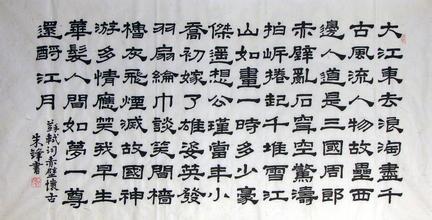 大江東去浪淘盡千
古風流人物故壘西
邊人道是三國周郎
赤壁亂石穿空驚濤
拍岸捲起千堆雪江
山如畫一時多少豪
傑遥想公瑾當年小
喬初嫁了雄姿英發
羽扇綸巾談笑間檣
櫓灰飛煙滅故國神
游多情應笑我早生
華髮人間如夢一尊
還酹江月
蘇軾詞赤壁懷古
朱 書